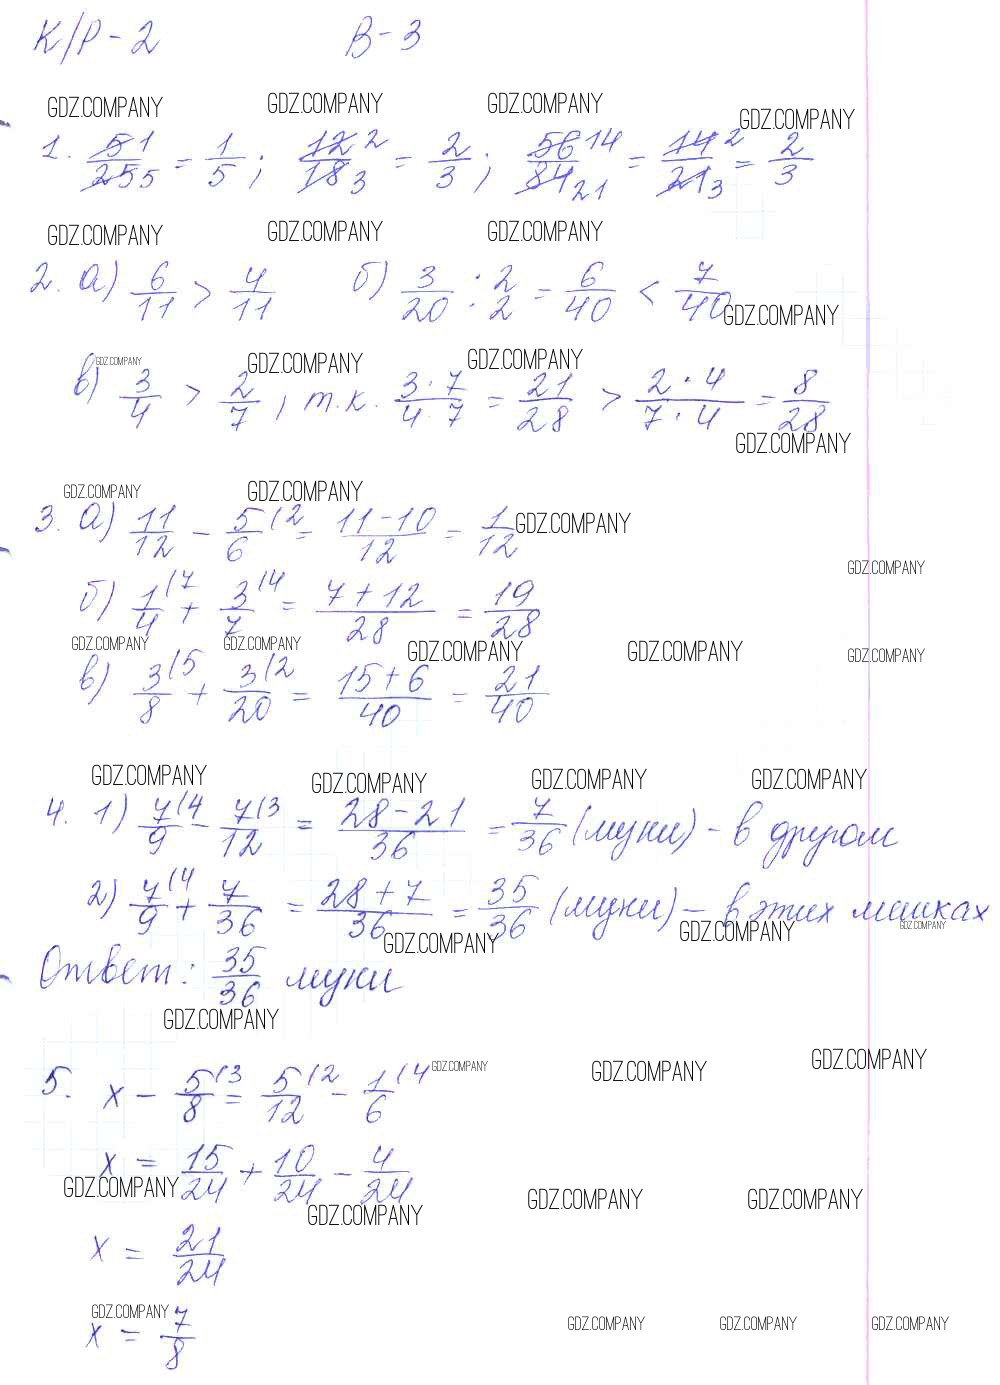 К/Р - 2 В - 3
GDZ.COMPANY GDZ.COMPANY GDZ.COMPANY GDZ.COMPANY
1. 5/25 1/5 = 1/5; 12/18 2/3 = 2/3; 56/84 14/21 = 14/21 2/3 = 2/3
GDZ.COMPANY GDZ.COMPANY GDZ.COMPANY
2. а) 6/11 > 4/11 б) 3/20 : 2/2 = 6/40 < 7/40
GDZ.COMPANY
GDZ.COMPANY GDZ.COMPANY GDZ.COMPANY
в) 3/4 > 2/7, т.к. 3·7/4·7 = 21/28 > 2·4/7·4 = 8/28
GDZ.COMPANY
GDZ.COMPANY GDZ.COMPANY GDZ.COMPANY
3. а) 11/12 - 5/6 (2 = 11-10/12 = 1/12
GDZ.COMPANY
б) 1/4 (7 + 3/7 (4 = 7+12/28 = 19/28
GDZ.COMPANY GDZ.COMPANY GDZ.COMPANY GDZ.COMPANY GDZ.COMPANY
в) 3/8 (5 + 3/20 (2 = 15+6/40 = 21/40
GDZ.COMPANY GDZ.COMPANY GDZ.COMPANY GDZ.COMPANY
4. 1) 7/9 (4 - 7/12 (3 = 28-21/36 = 7/36 (муки) - в другом
2) 7/9 (4 + 7/36 = 28+7/36 = 35/36 (муки) - в этих мешках
GDZ.COMPANY GDZ.COMPANY GDZ.COMPANY
Ответ: 35/36 муки
GDZ.COMPANY
GDZ.COMPANY GDZ.COMPANY GDZ.COMPANY
5. x - 5/8 (3 = 5/12 (2 - 1/6 (4
x = 15/24 + 10/24 - 4/24
GDZ.COMPANY GDZ.COMPANY GDZ.COMPANY GDZ.COMPANY
x = 21/24
GDZ.COMPANY GDZ.COMPANY GDZ.COMPANY GDZ.COMPANY
x = 7/8